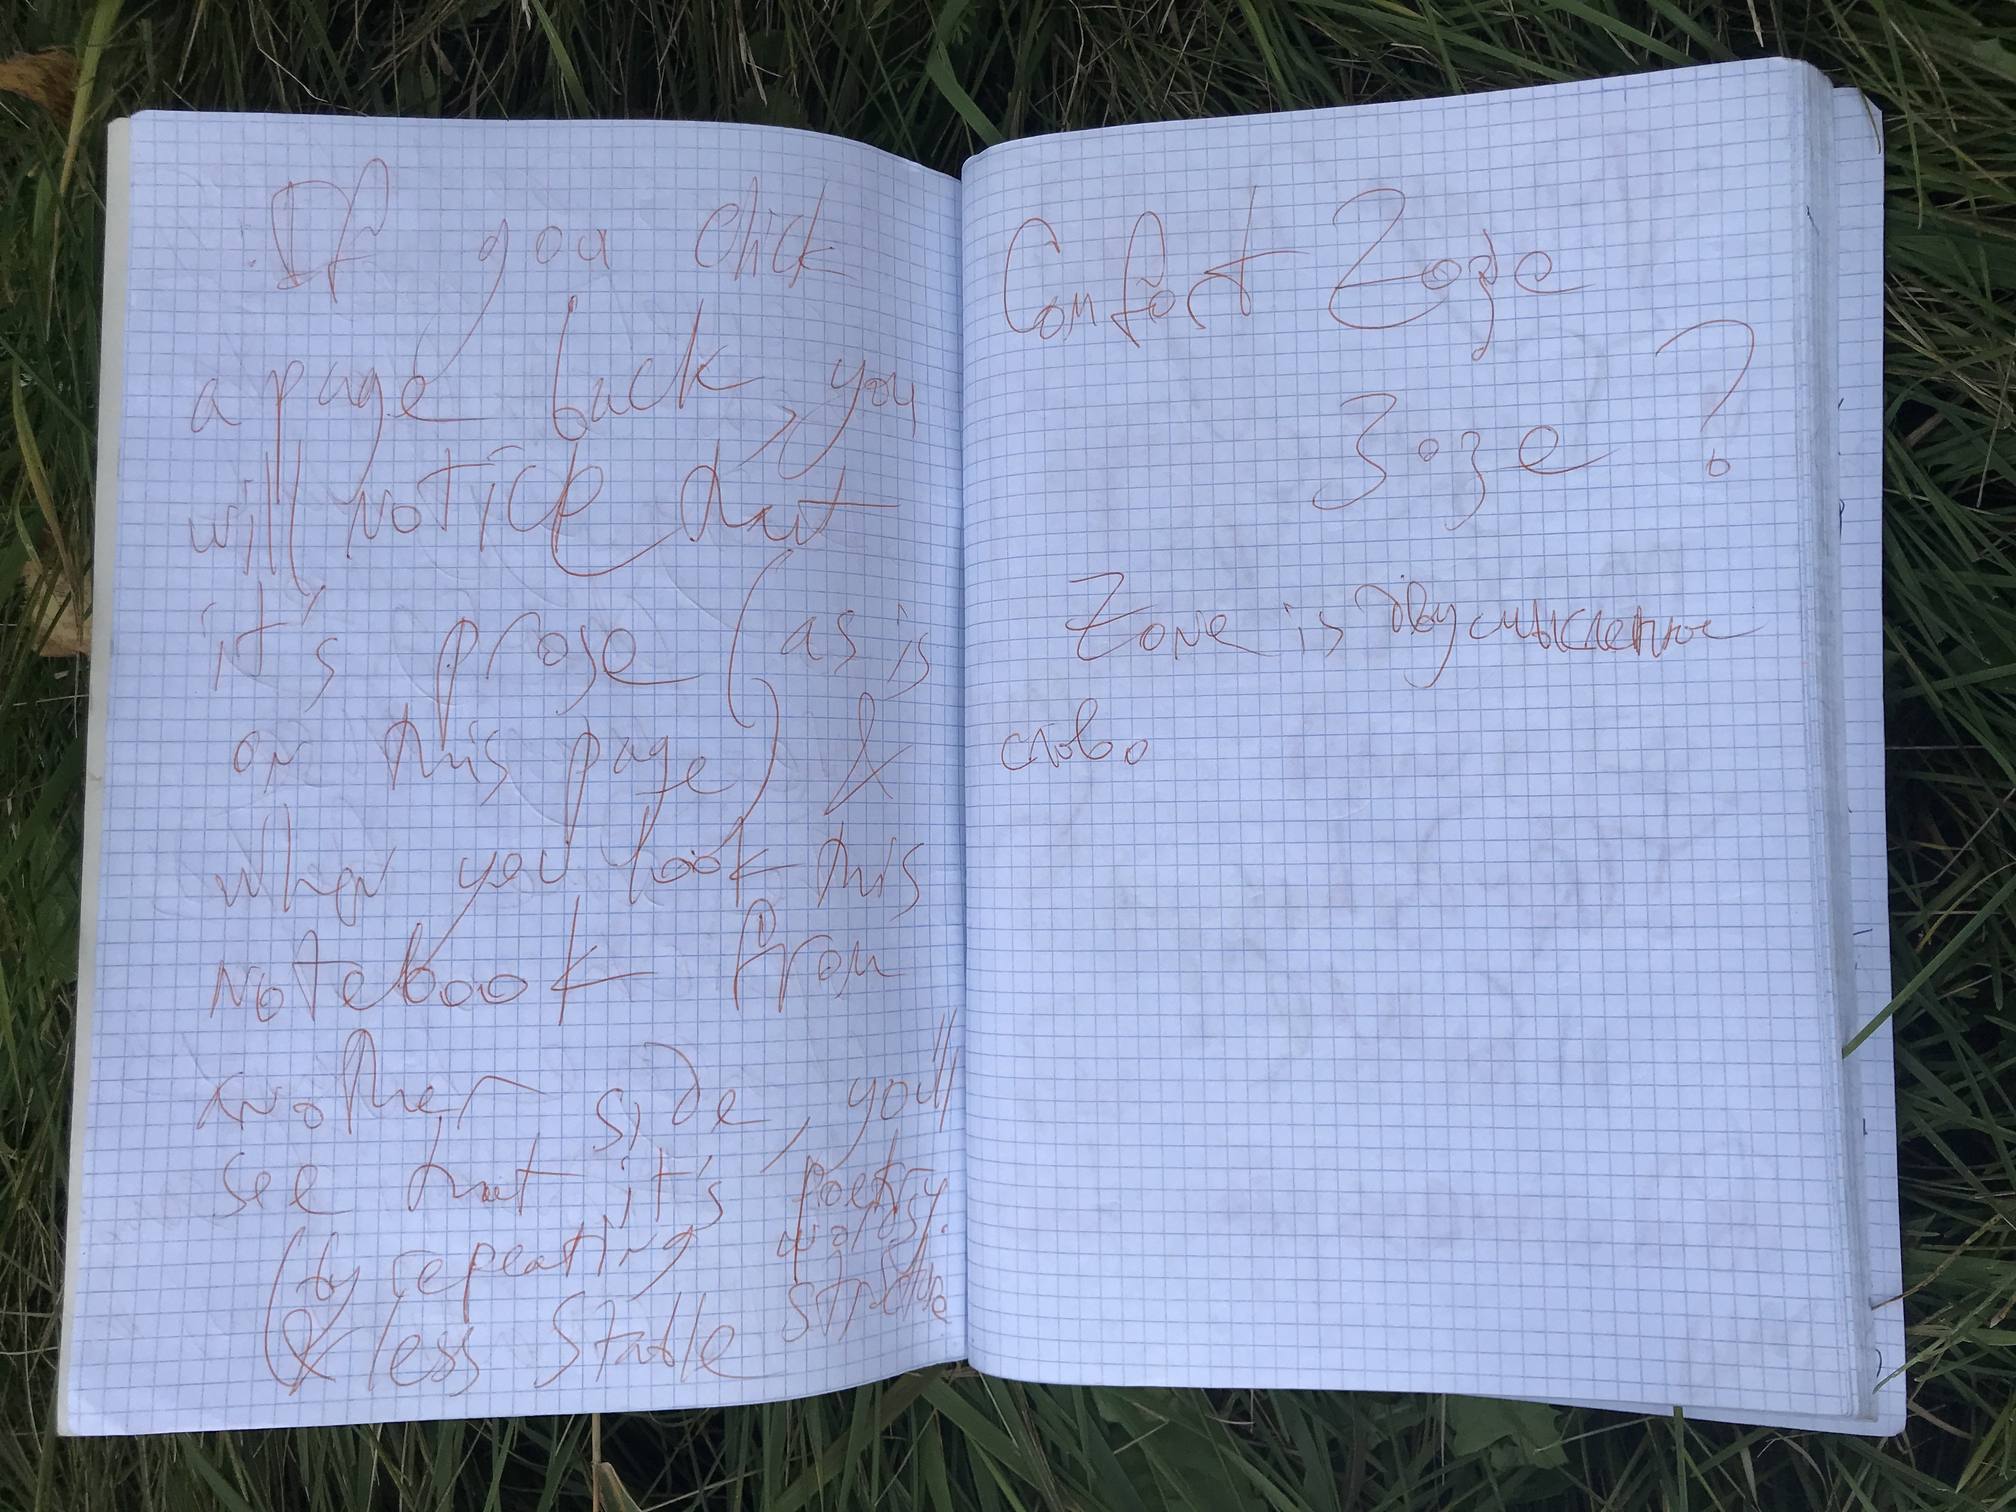 If you click
a page back, you
will notice that
it's prose (as is
on this page) &
when you look this
notebook from
another side, you'll
see that it's poetry
(by repeating words)
& less stable structure
Comfort Zoзe
Зoзe ?
Zone is двусмысленное
слово